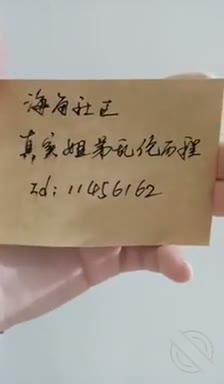 海角社区
真实姐弟乱伦历程
Id: 11456162